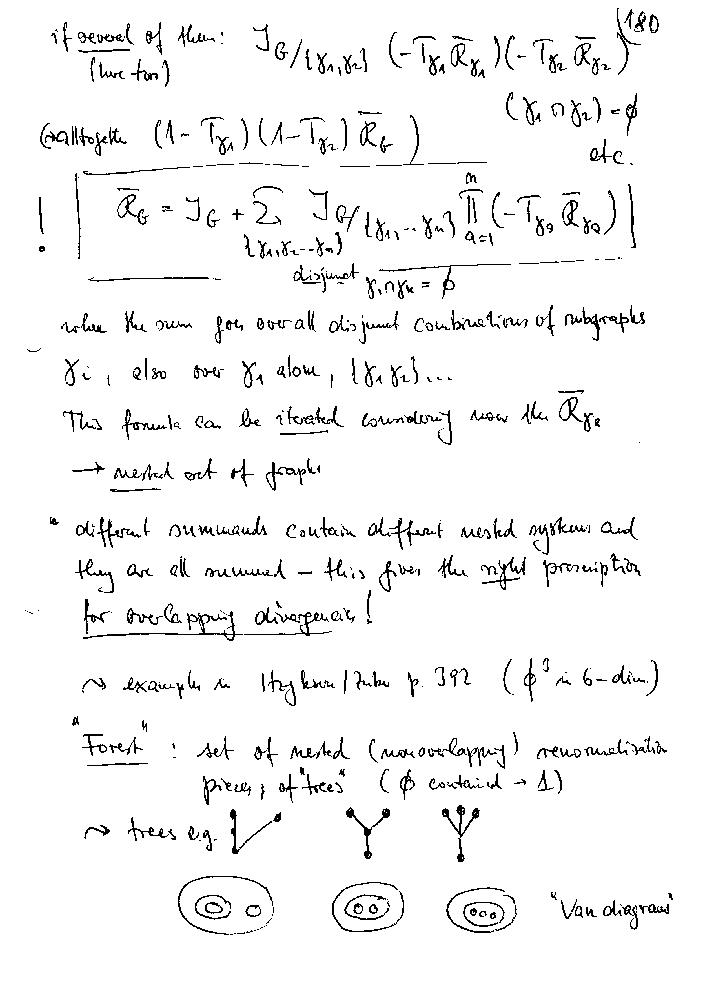 180
if several of them: I_G/{γ₁,γ₂} (-T_γ₁ R̄_γ₁)(-T_γ₂ R̄_γ₂)
(here two) (γ₁ ∩ γ₂) = ϕ
(→ alltogether (1 - T_γ₁)(1 - T_γ₂) R̄_G ) etc.
! R̄_G = I_G + Σ_{γ₁,γ₂...γₙ} I_G/{γ₁,...γₙ} ∏_{a=1}^{n} (-T_γₐ R̄_γₐ)
disjunct γᵢ∩γₖ = ϕ
where the sum goes over all disjunct combinations of subgraphs
γi, also over γ₁ alone, {γ₁γ₂}...
This formula can be iterated considering now the R̄_γₐ
→ nested set of graphs
" different summands contain different nested systems and
they are all summed – this gives the right prescription
for overlapping divergencies!
↝ examples in Itzykson/Zuber p. 392 (ϕ³ in 6-dim.)
"Forest": set of nested (nonoverlapping) renormalization
pieces; of "trees" (ϕ contained → 1)
↝ trees e.g.
"Van diagrams"